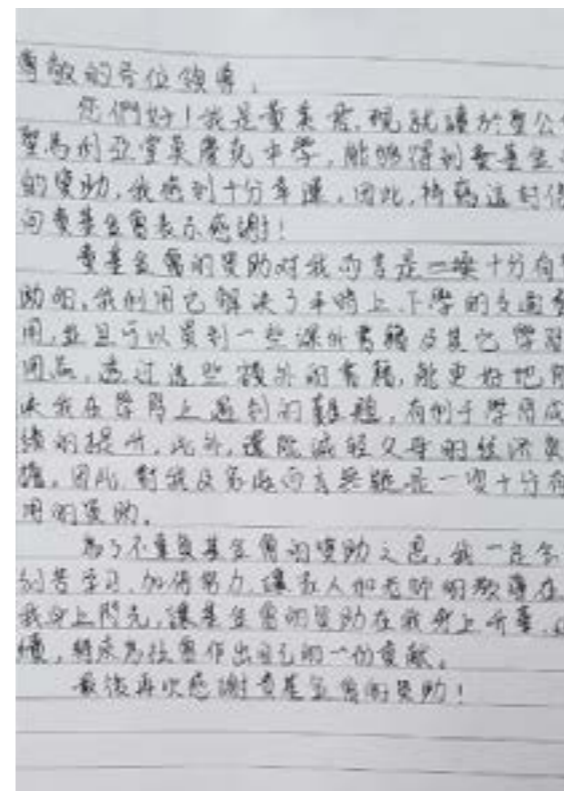 尊敬的各位領導，
您們好！我是黃秉君，現就讀於聖公
聖馬利亞堂莫慶堯中學，能夠得到貴基金
的資助，我感到十分幸運，因此，特寫這封信
向貴基金會表示感謝！
貴基金會的資助對我而言是一項十分有
助的，我利用它解決了平時上、下學的交通
用，並且可以買到一些課外書籍及其它學習
用品，透过這些額外的書籍，能更好地
决我在學習上遇到的難題，有利于學習成
績的提升，此外，還能減輕父母的經濟負
擔，因此，對我及家庭而言無疑是一項十分有
用的資助。
為了不辜負基金會的資助之恩，我一定會
刻苦学习，加倍努力，讓家人和老師的教導在
我身上閃光，讓基金會的資助在我身上
續，將來為社會作出自己的一份貢獻。
最後再次感謝貴基金會的資助！